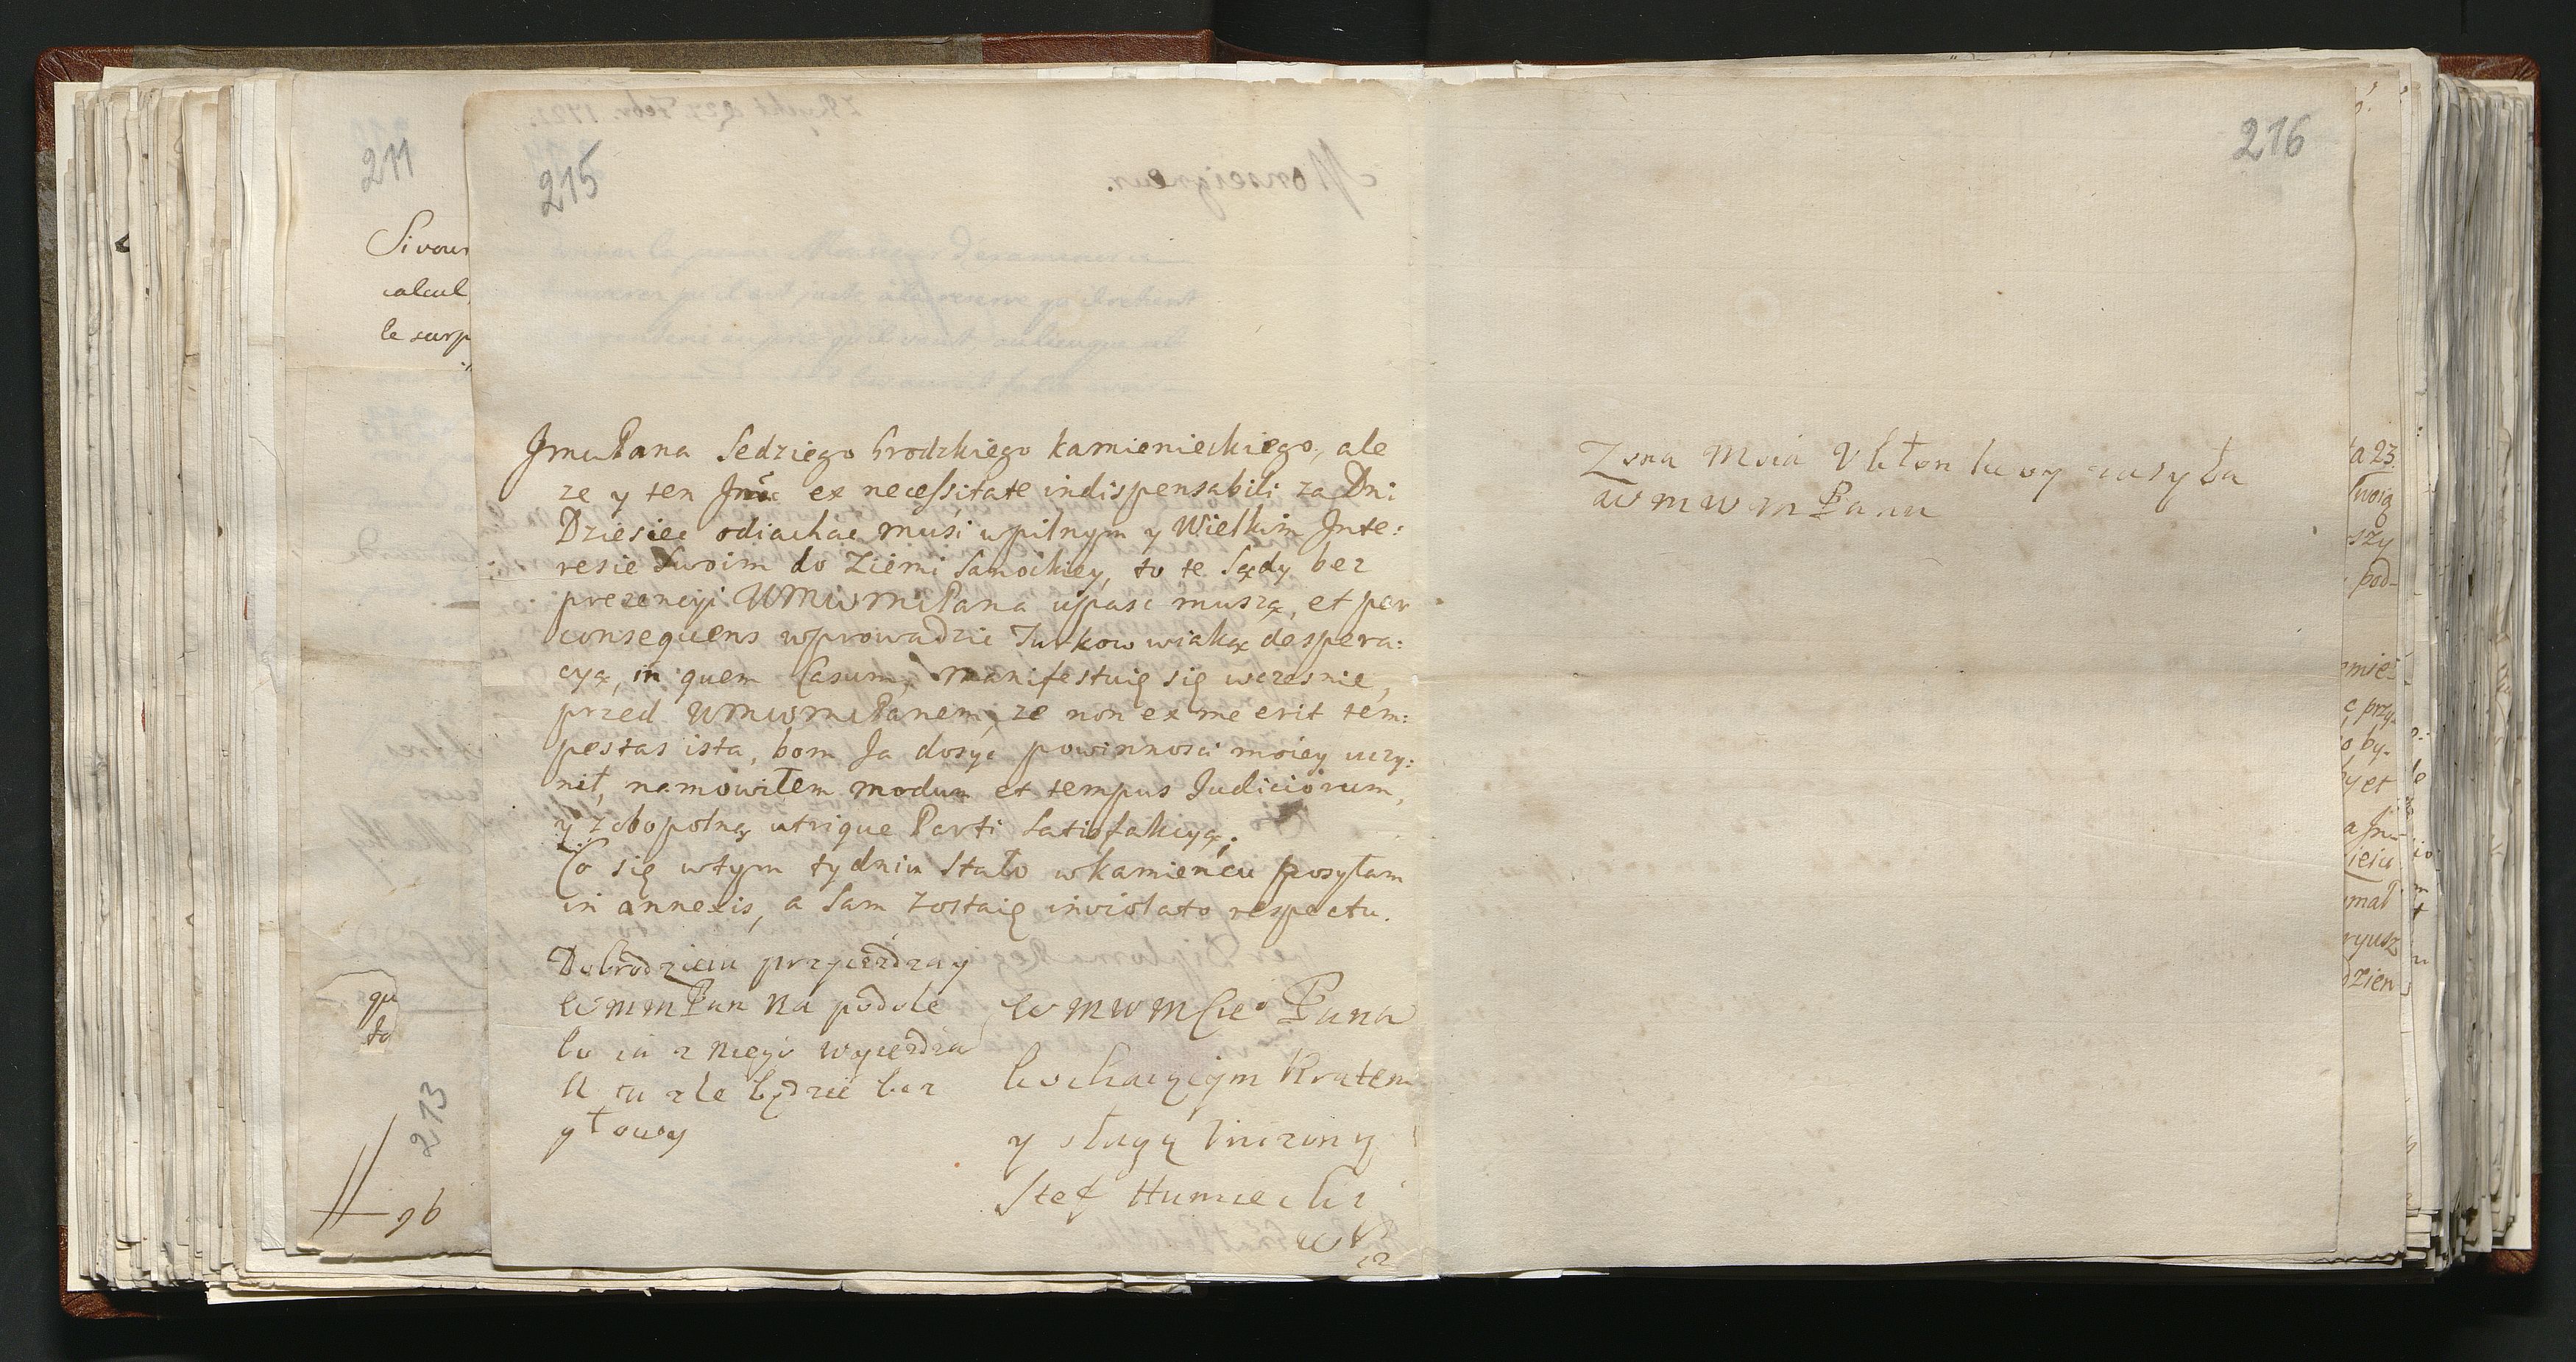 211
Si vous
calcul
le surp
qu
to
213
96
215
JmcPana Sedziego Grodzkiego Kamienieckiego, ale
ze y ten Jmć ex necessitate indispensabili za Dni
Dziesiec odiachac muśi w pilnym y Wielkim Jnte:
resie Swoim do Ziemi Sanockiey, to te Sądy bez
prezencyi WMWMPana uspasc muszą, et per
consequens wprowadzic Turkow w iaką despera:
cyą, in quem Casum, manifestuię się wczesnie,
przed WMWMPanem, ze non ex me erit tem:
pestas ista, bom Ja dosyc powinnosci moiey uczy:
nił, namowiłem modum et tempus Judiciorum,
y zobopolną utrique Parti Satisfakcyą.
Co się w tym tydniu Stało w Kamieńcu posyłam
in annexis, a Sam zostaię inviolato respectu.
Dobrodzieiu przyiezdzay
WMMPan na podole
bo ia z niego wyiezdza
a tu zle będzie bez
głowy
WMWMCiego Pana
Kochaiącym Bratem
y sługą Unizony
Stef Humiecki
WP
216
Zona Moia Ukłon swoy zasyła
WMWMPanu
a 23.
swoią
szy
pod-
mie
przy-
by-
y et
a Jm
mał
ryusz
dzien